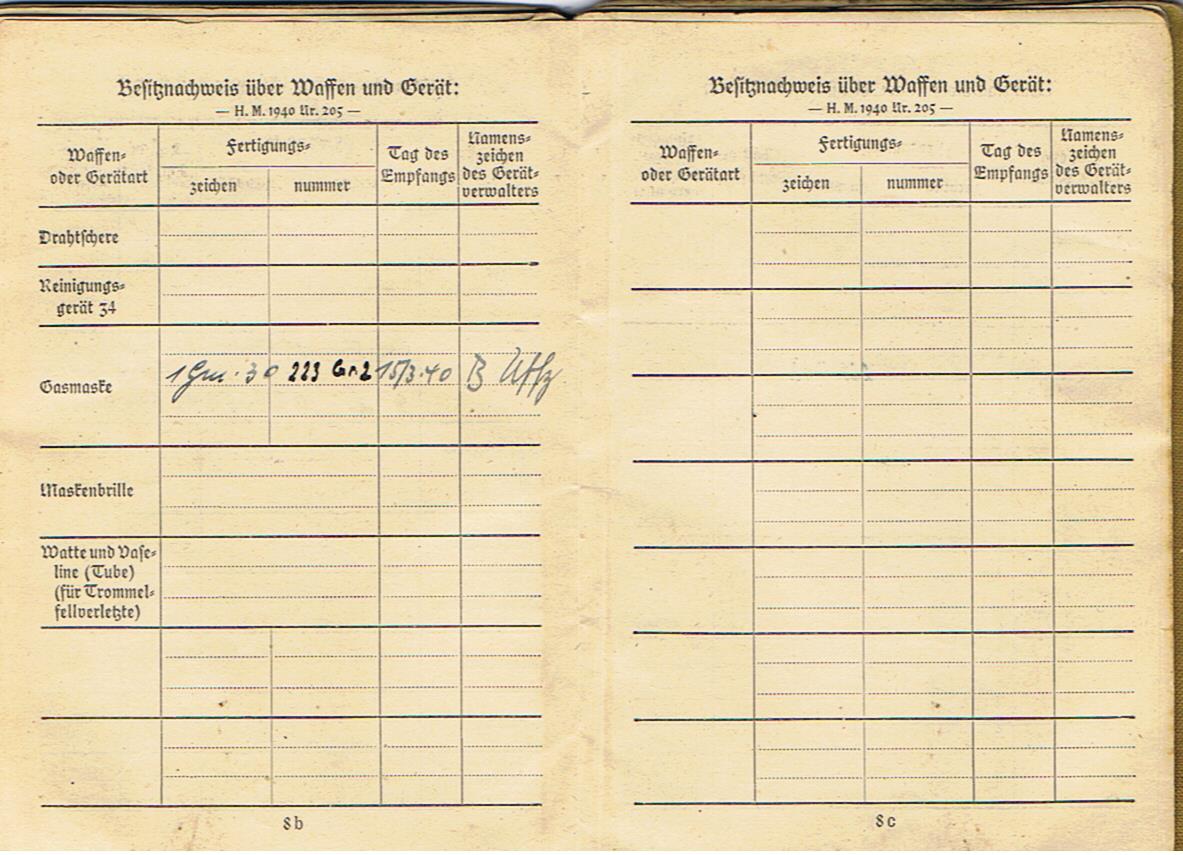 Besitznachweis über Waffen und Gerät:
— H. M. 1940 Nr. 205 —
Waffen-
oder Gerätart
Fertigungs-
zeichen
nummer
Tag des
Empfangs
Namens-
zeichen
des Gerät-
verwalters
Drahtschere
Reinigungs-
gerät 34
Gasmaske 1 Gm. 30 223 Gr. 2 15/3.40 B Uffz
Maskenbrille
Watte und Vase-
line (Tube)
(für Trommel-
fellverletzte)
8 b
Besitznachweis über Waffen und Gerät:
— H. M. 1940 Nr. 205 —
Waffen-
oder Gerätart
Fertigungs-
zeichen
nummer
Tag des
Empfangs
Namens-
zeichen
des Gerät-
verwalters
8 c